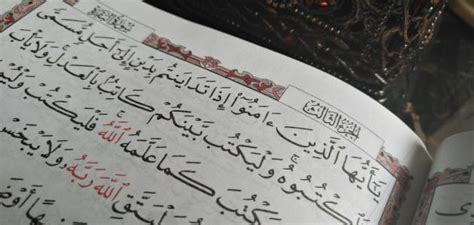 الجزء الثالث
يَٰٓأَيُّهَا ٱلَّذِينَ ءَامَنُوٓا۟ إِذَا تَدَايَنتُم بِدَيْنٍ إِلَىٰٓ أَجَلٍ مُّسَمًّى
فَٱكْتُبُوهُ ۚ وَلْيَكْتُب بَّيْنَكُمْ كَاتِبٌۢ بِٱلْعَدْلِ ۚ وَلَا يَأْبَ
يَكْتُبَ كَمَا عَلَّمَهُ ٱللَّهُ ۚ فَلْيَكْتُبْ
وَلْيَتَّقِ ٱللَّهَ رَبَّهُۥ وَلَا يَبْخَسْ